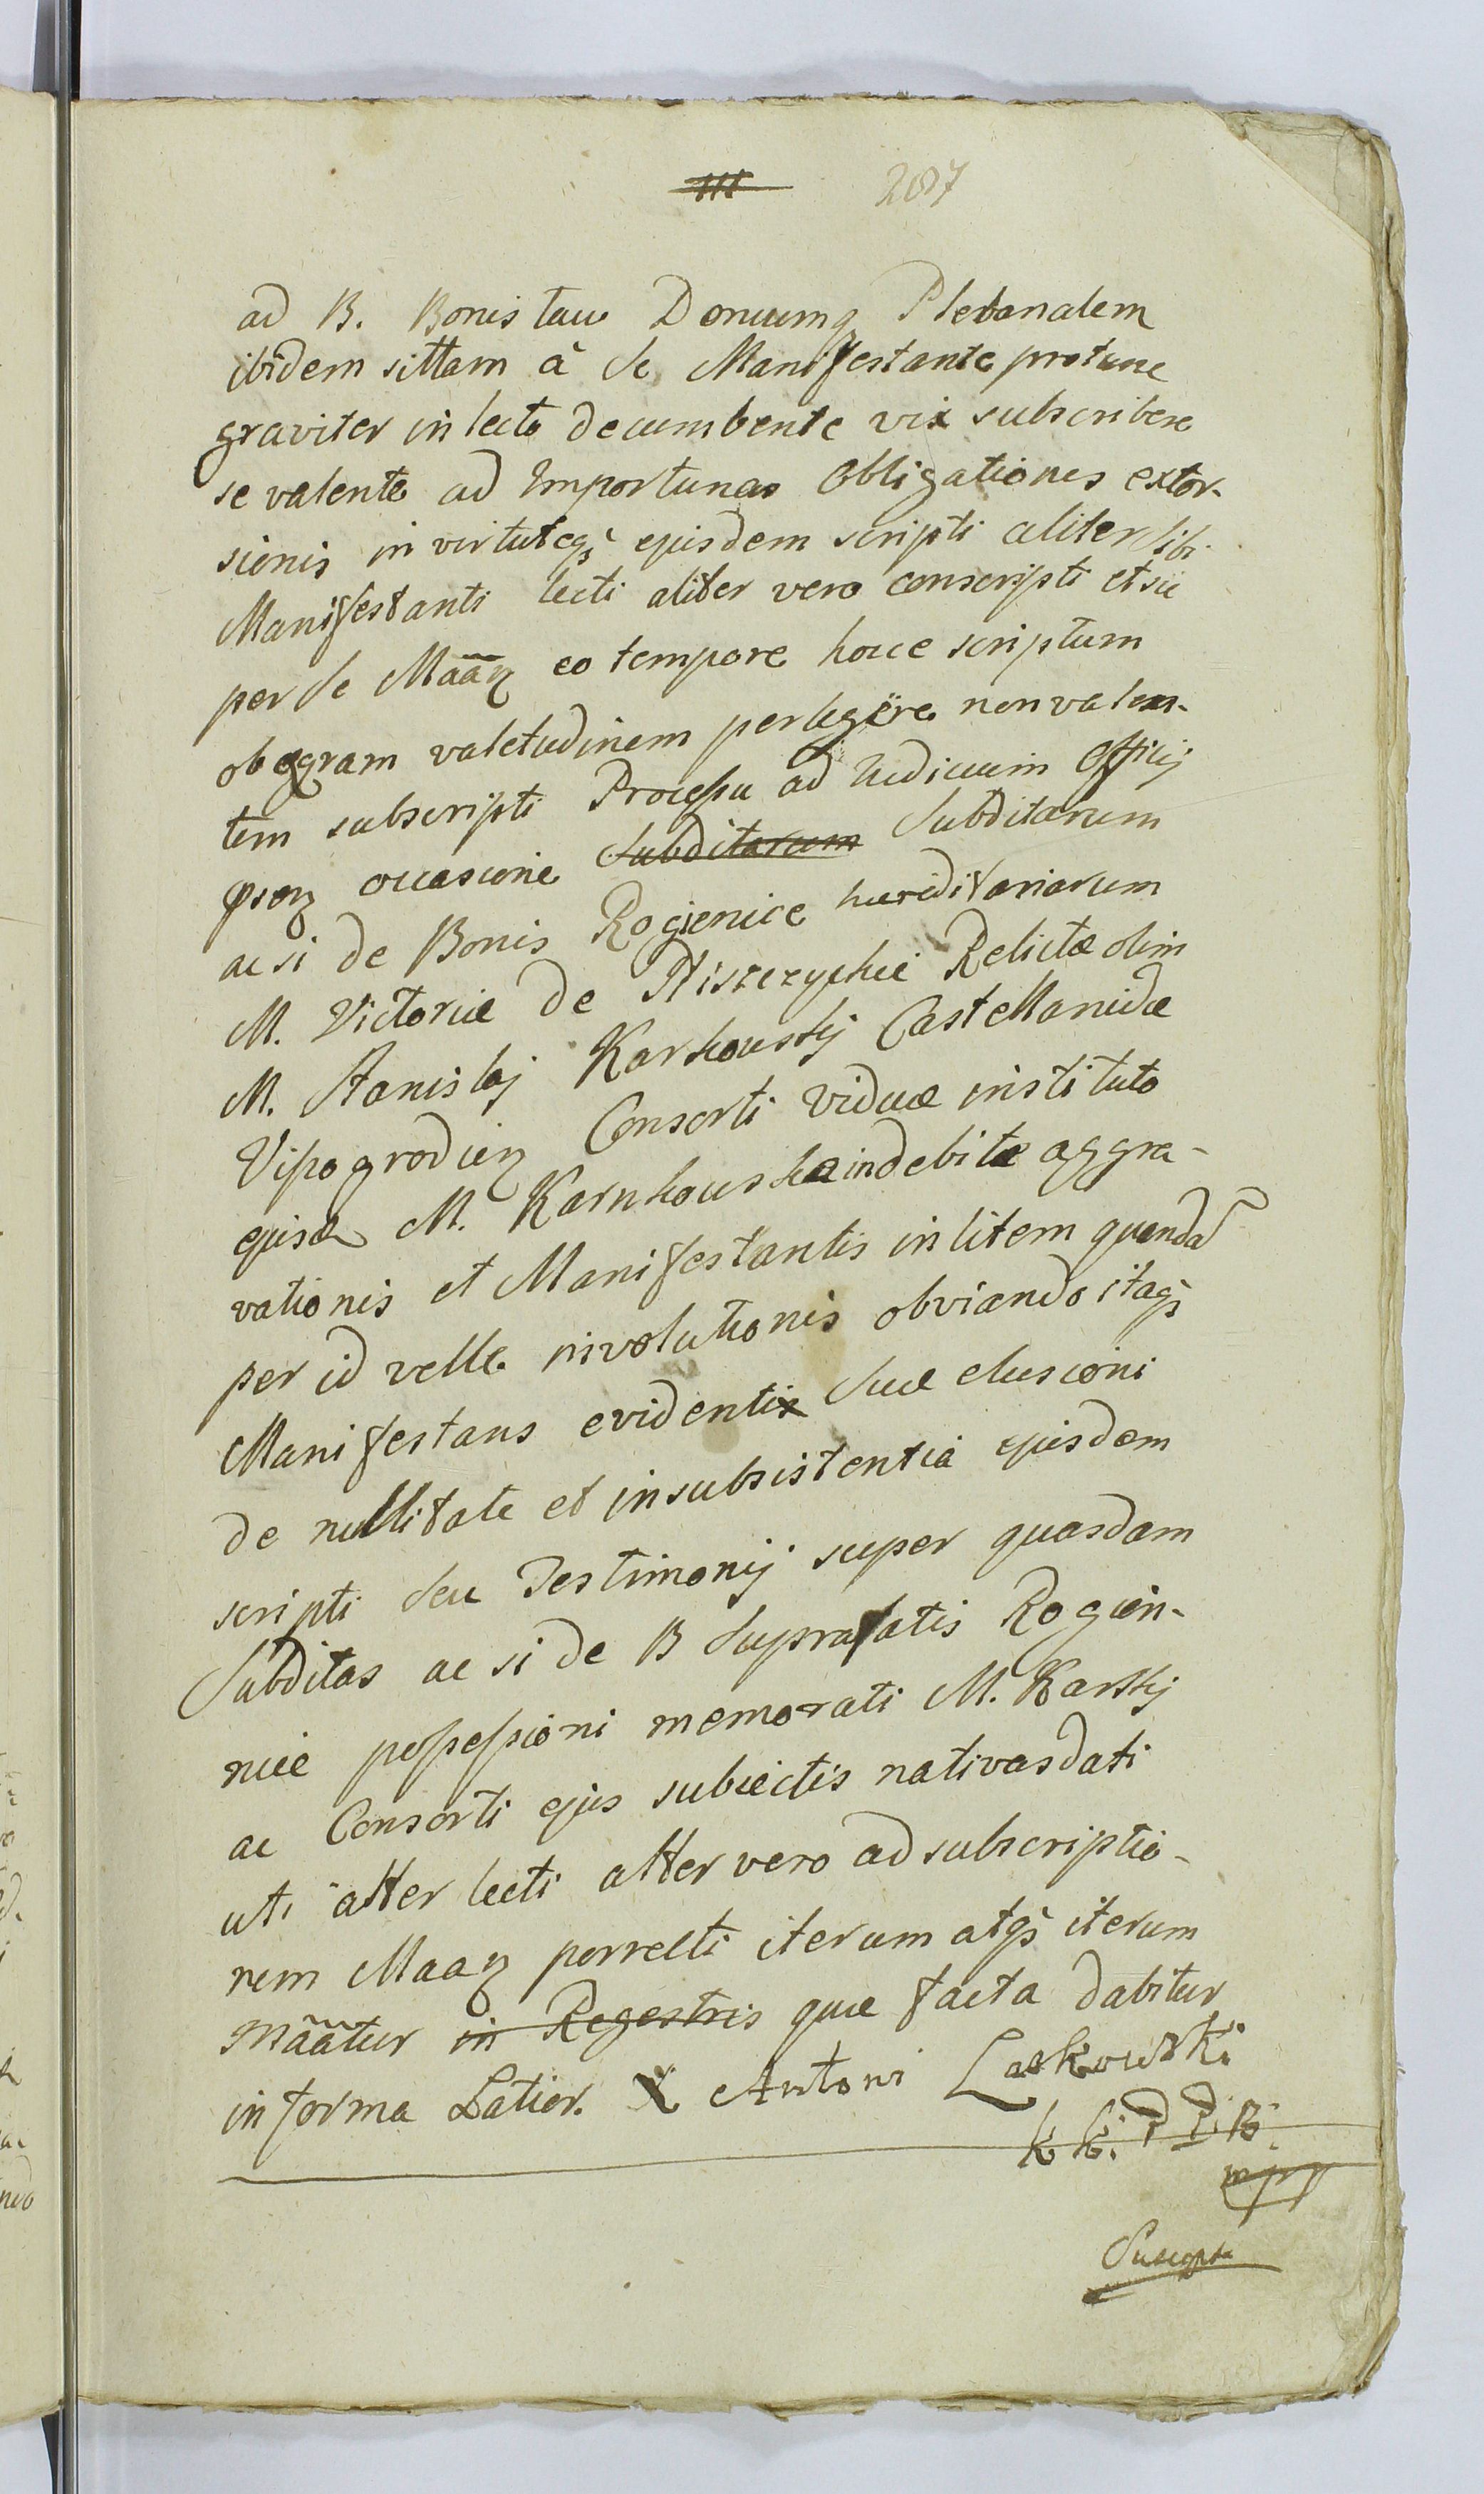 287
ad B. Bonislau Domumq Plebanalem
ibidem sittam à se Manifestante protunc
graviter in lecto decumbente vix subscribere
se valente ad Importunas Obligationes extor-
sionis in virtuteqs ejusdem scripti aliter sibi
Manifestanti lecti aliter vero conscripti et sic
per se Mããz eo tempore hocce scriptum
ob egram valetudinem perlegere non valen-
tem subscripti Processu ad Iudicium Officij
psenz occasione Subditarum Subditarum
ac si de Bonis Rogienice hereditariarum
M. Victoriæ de Pliszczyskie Relictæ olim
M. Stanislaj Karkowskij Castellanidæ
Vipogrodien Consorti Viduæ instituto
ejusd M. Karnkowska indebitæ aggra-
vationis et Manifestantis in litem quandã
per id velle involutionis obviando itaqs
Manifestans evidenti suæ elusioni
de nullitate et insubsistentia ejusdem
scripti seu Testimonij super quasdam
Subditas ac si de B Suprafatis Rogien-
nice possessioni memorati M. Karskij
ac Consorti ejus subiectis nativas dati
uti alter lecti alter vero ad subscriptio-
nem Maaz porrecti iterum atqs iterum
Mããtur in Regestris quæ facta dabitur
in forma Latior. X Antoni Laskowski
k k. P P. B.
mpp
Suscepta